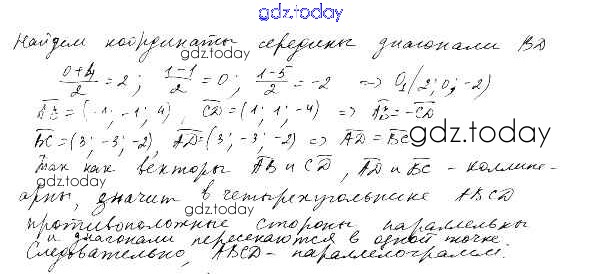 gdz.today
Найдем координаты середины диагонали BD
gdz.today
(0+4)/2 = 2; (1-1)/2 = 0; (1-5)/2 = -2 => O₁(2; 0; -2)
AB = (-1; -1; 4), CD = (1; 1; -4) => AB = -CD
BC = (3; -3; -2), AD = (3; -3; -2) => AD = BC
gdz.today
gdz.today
Так как векторы AB и CD, AD и BC - коллине-
арны, значит в четырехугольнике ABCD
gdz.today
противоположные стороны параллельны
и диагонали пересекаются в одной точке.
Следовательно, ABCD - параллелограмм.